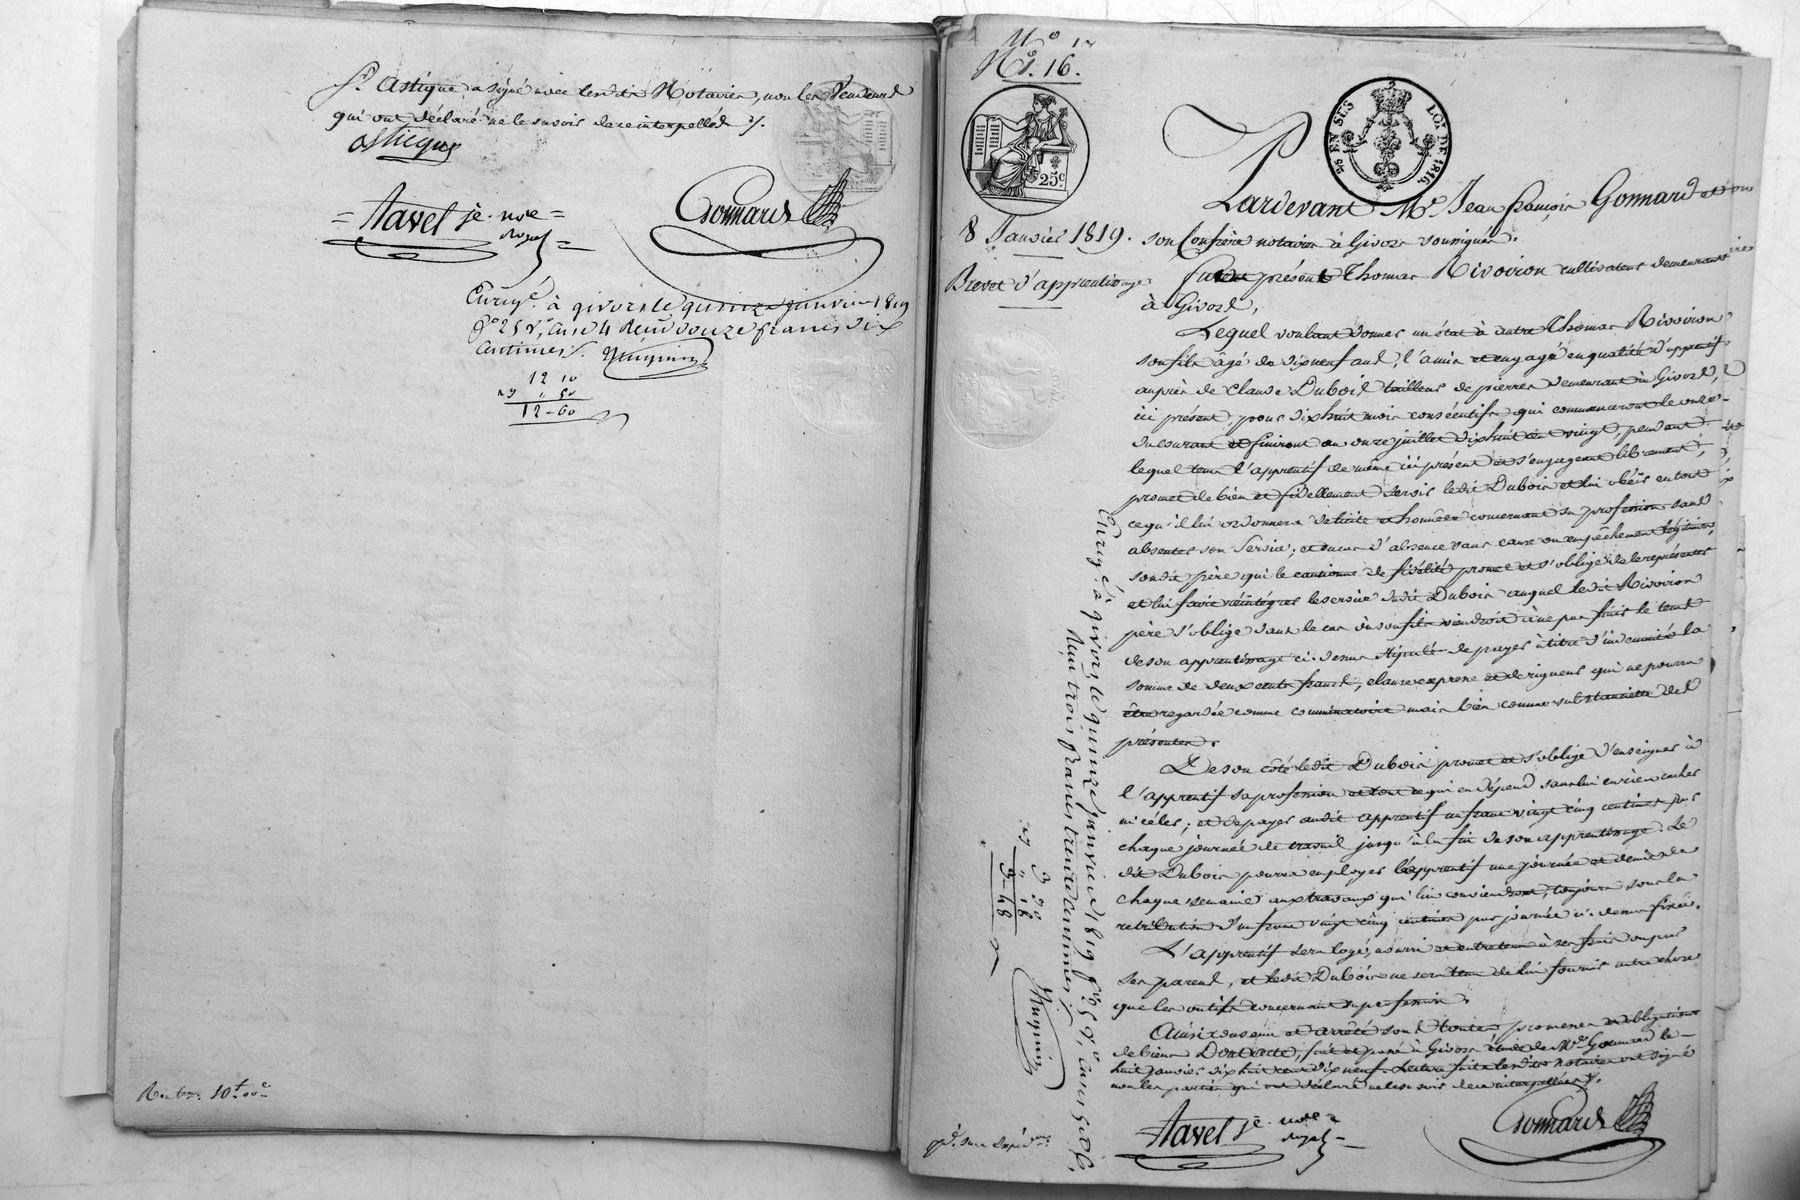 Sr. Astique a signé avec lesdits Notaires, non les Vendeurs
qui ont déclaré ne le savoir de ce interpellés ./.
Astique
= Havel je. nore = Gonnard
Royal =
Enregé à givors le quinze janvier 1819
fo 25 vo, case 4 Reçu douze francs dix
centimes.
12 10
" 50
12-60
No. 16.
25c
EN SUS LOI DE 1816.
Pardevant Me. Jean François Gonnard et
8 Janvier 1819. son Confrère notaires à Givors soussignés.
Brevet d'apprentissage
Furent présents Thomas Rivoiron cultivateur demeurant
à Givors,
Lequel voulant donner un état à autre Thomas Rivoiron
son fils âgé de dixneuf ans, l'a mis et engagé en qualité d'apprentif
auprès de Claude Dubois tailleur de pierres demeurant à Givors,
ici présent, pour dixhuit mois consécutifs qui commenceront le onze
du courant et finiront au onze juillet dixhuit cent vingt pendant
lequel tems l'apprentif de même ici présent et s'engageant librement,
promet de bien et fidellement servir ledit Dubois et lui obéir en tout
ce qu'il lui ordonnera de licite et honnête concernant sa profession sans
absenter son Service; et au cas d'absence sans cause ou empêchement légitimes,
sondit père qui le cautionne de fidélité promet et s'oblige de le représenter
et lui faire réintégrer le service dudit Dubois auquel ledit Rivoiron
père s'oblige dans le cas où son fils viendroit à ne pas finir le tems
de son apprentissage ci-dessus stipulé de payer à titre d'indemnité la
somme de deux cents francs, clause expresse et de rigueur qui ne pourra
être regardée comme comminatoire mais bien comme substancielle des
présentes.
De son côté ledit Dubois promet et s'oblige d'enseigner à
l'apprentif sa profession et tout ce qui en dépend sans lui en rien cacher
ni céler; et de payer audit apprentif un franc vingt cinq centimes par
chaque journée de travail jusqu'à la fin de son apprentissage. Le
dit Dubois pourra employer l'apprentif une journée et demie de
chaque semaine aux travaux qui lui conviendront, toujours sous la
rétribution d'un franc vingt cinq centimes par journée ci-dessus fixée.
L'apprentif sera logé, nourri et entretenu à ses frais ou par
ses parens, et ledit Dubois ne sera tenu de lui fournir autre chose
que les outils concernant sa profession.
Ainsi convenu et arrêté sous toutes promesses et obligations
de biens Dont acte, fait et passé à Givors étude de Me Gonnard le
huit janvier dix huit cent dix neuf. Lecture faite lesdits notaires ont signé
non les parties qui ont déclaré ne le savoir de ce interpellées ./.
Havel je. nore = Gonnard
Royal =
Enregé à givors le quinze janvier 1819 fo 25 vo, case
Reçu trois francs trente centimes